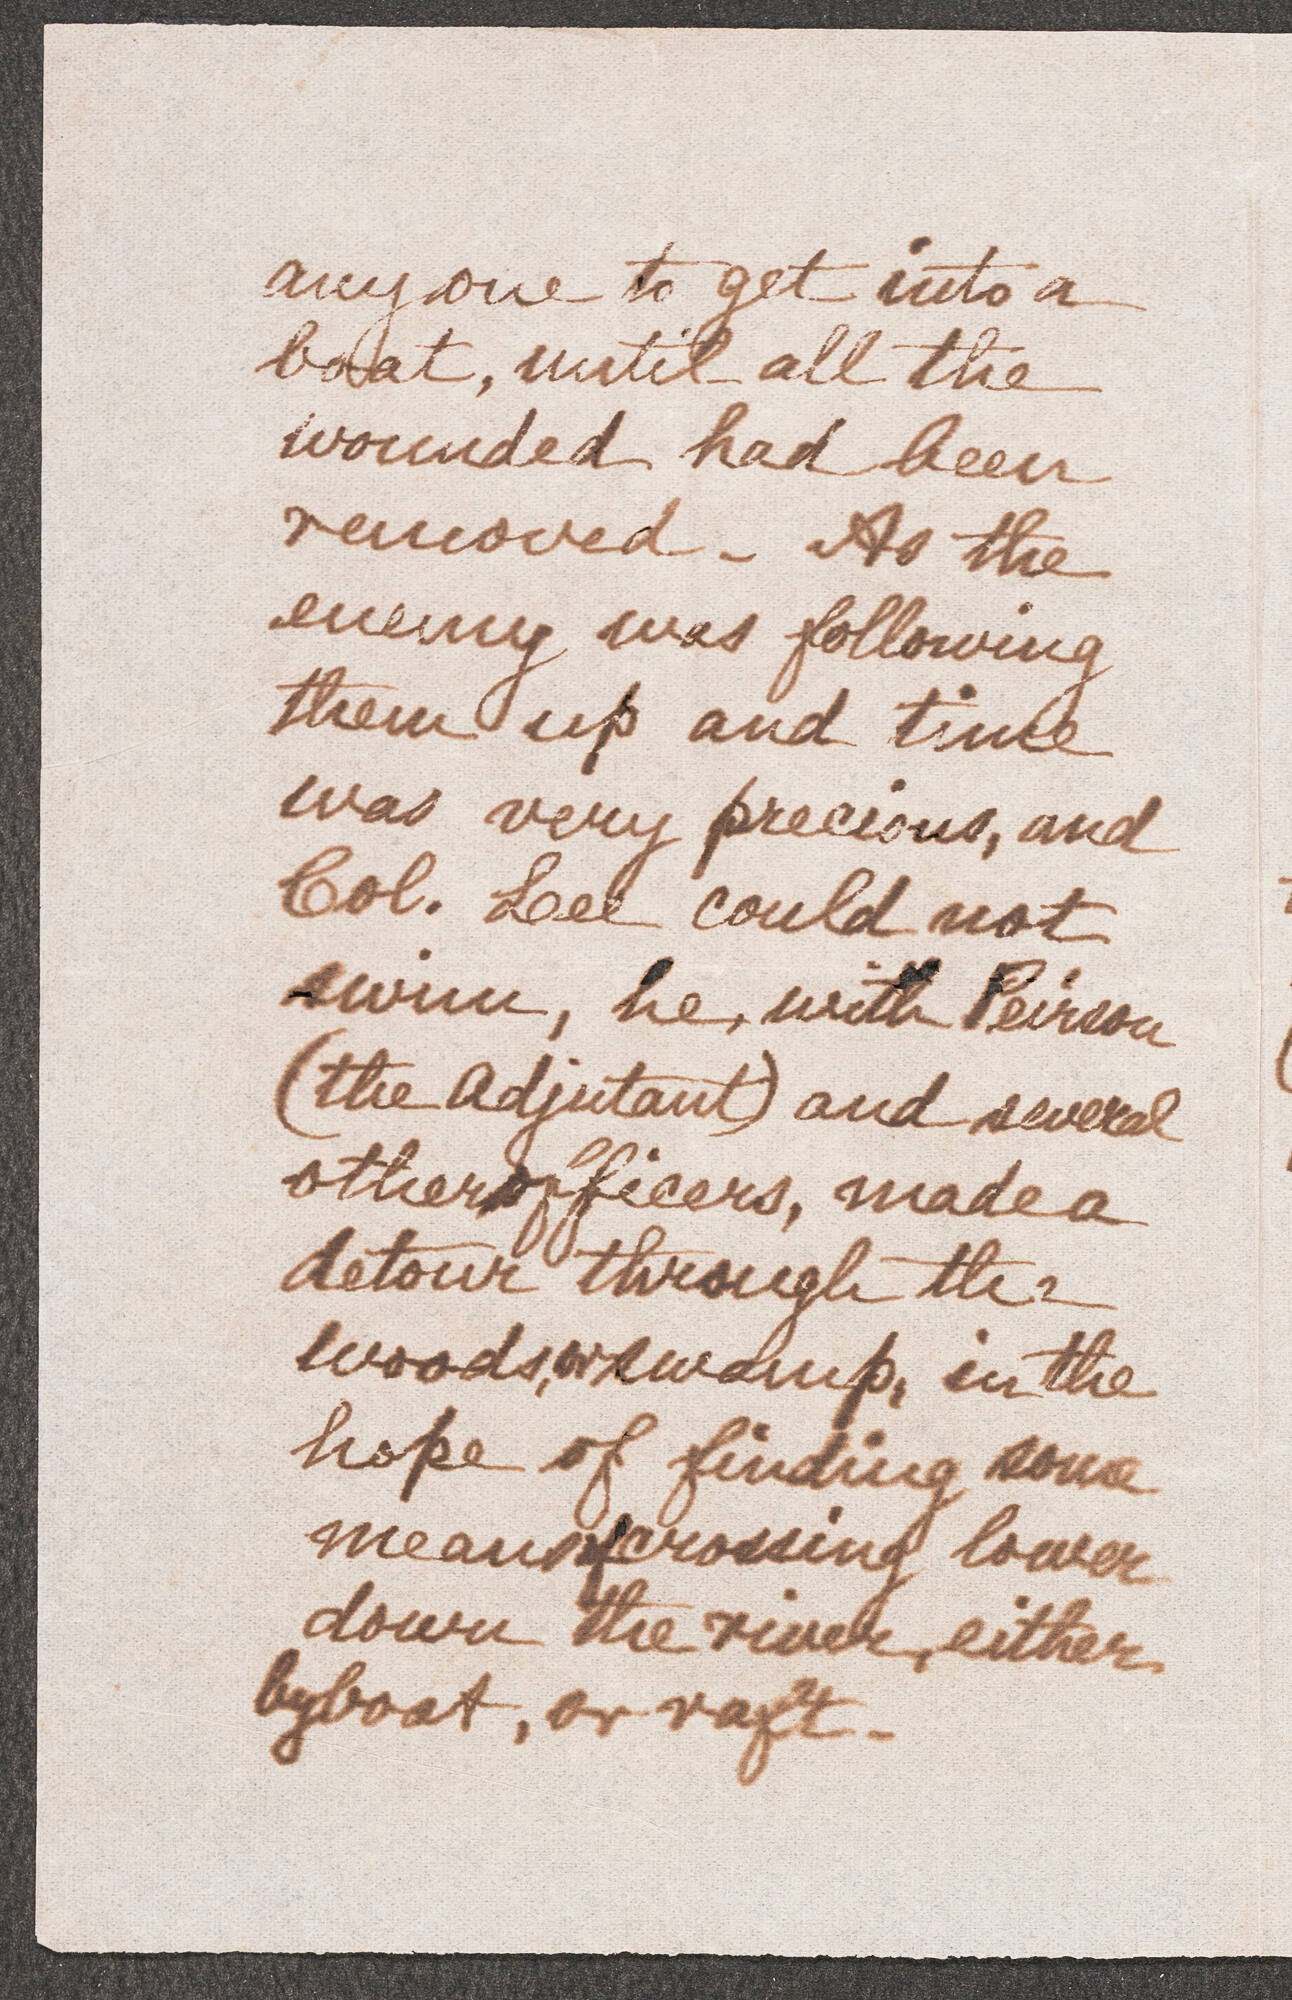 any one to get into a
boat, until all the
wounded had been
removed - As the
enemy was following
them up and time
was very precious, and
Col. Lee could not
swim, he, with Peirson
(the Adjutant) and several
other officers, made a
detour through the
woods, or swamp, in the
hope of finding some
means of crossing lower
down the river, either
by boat, or raft -